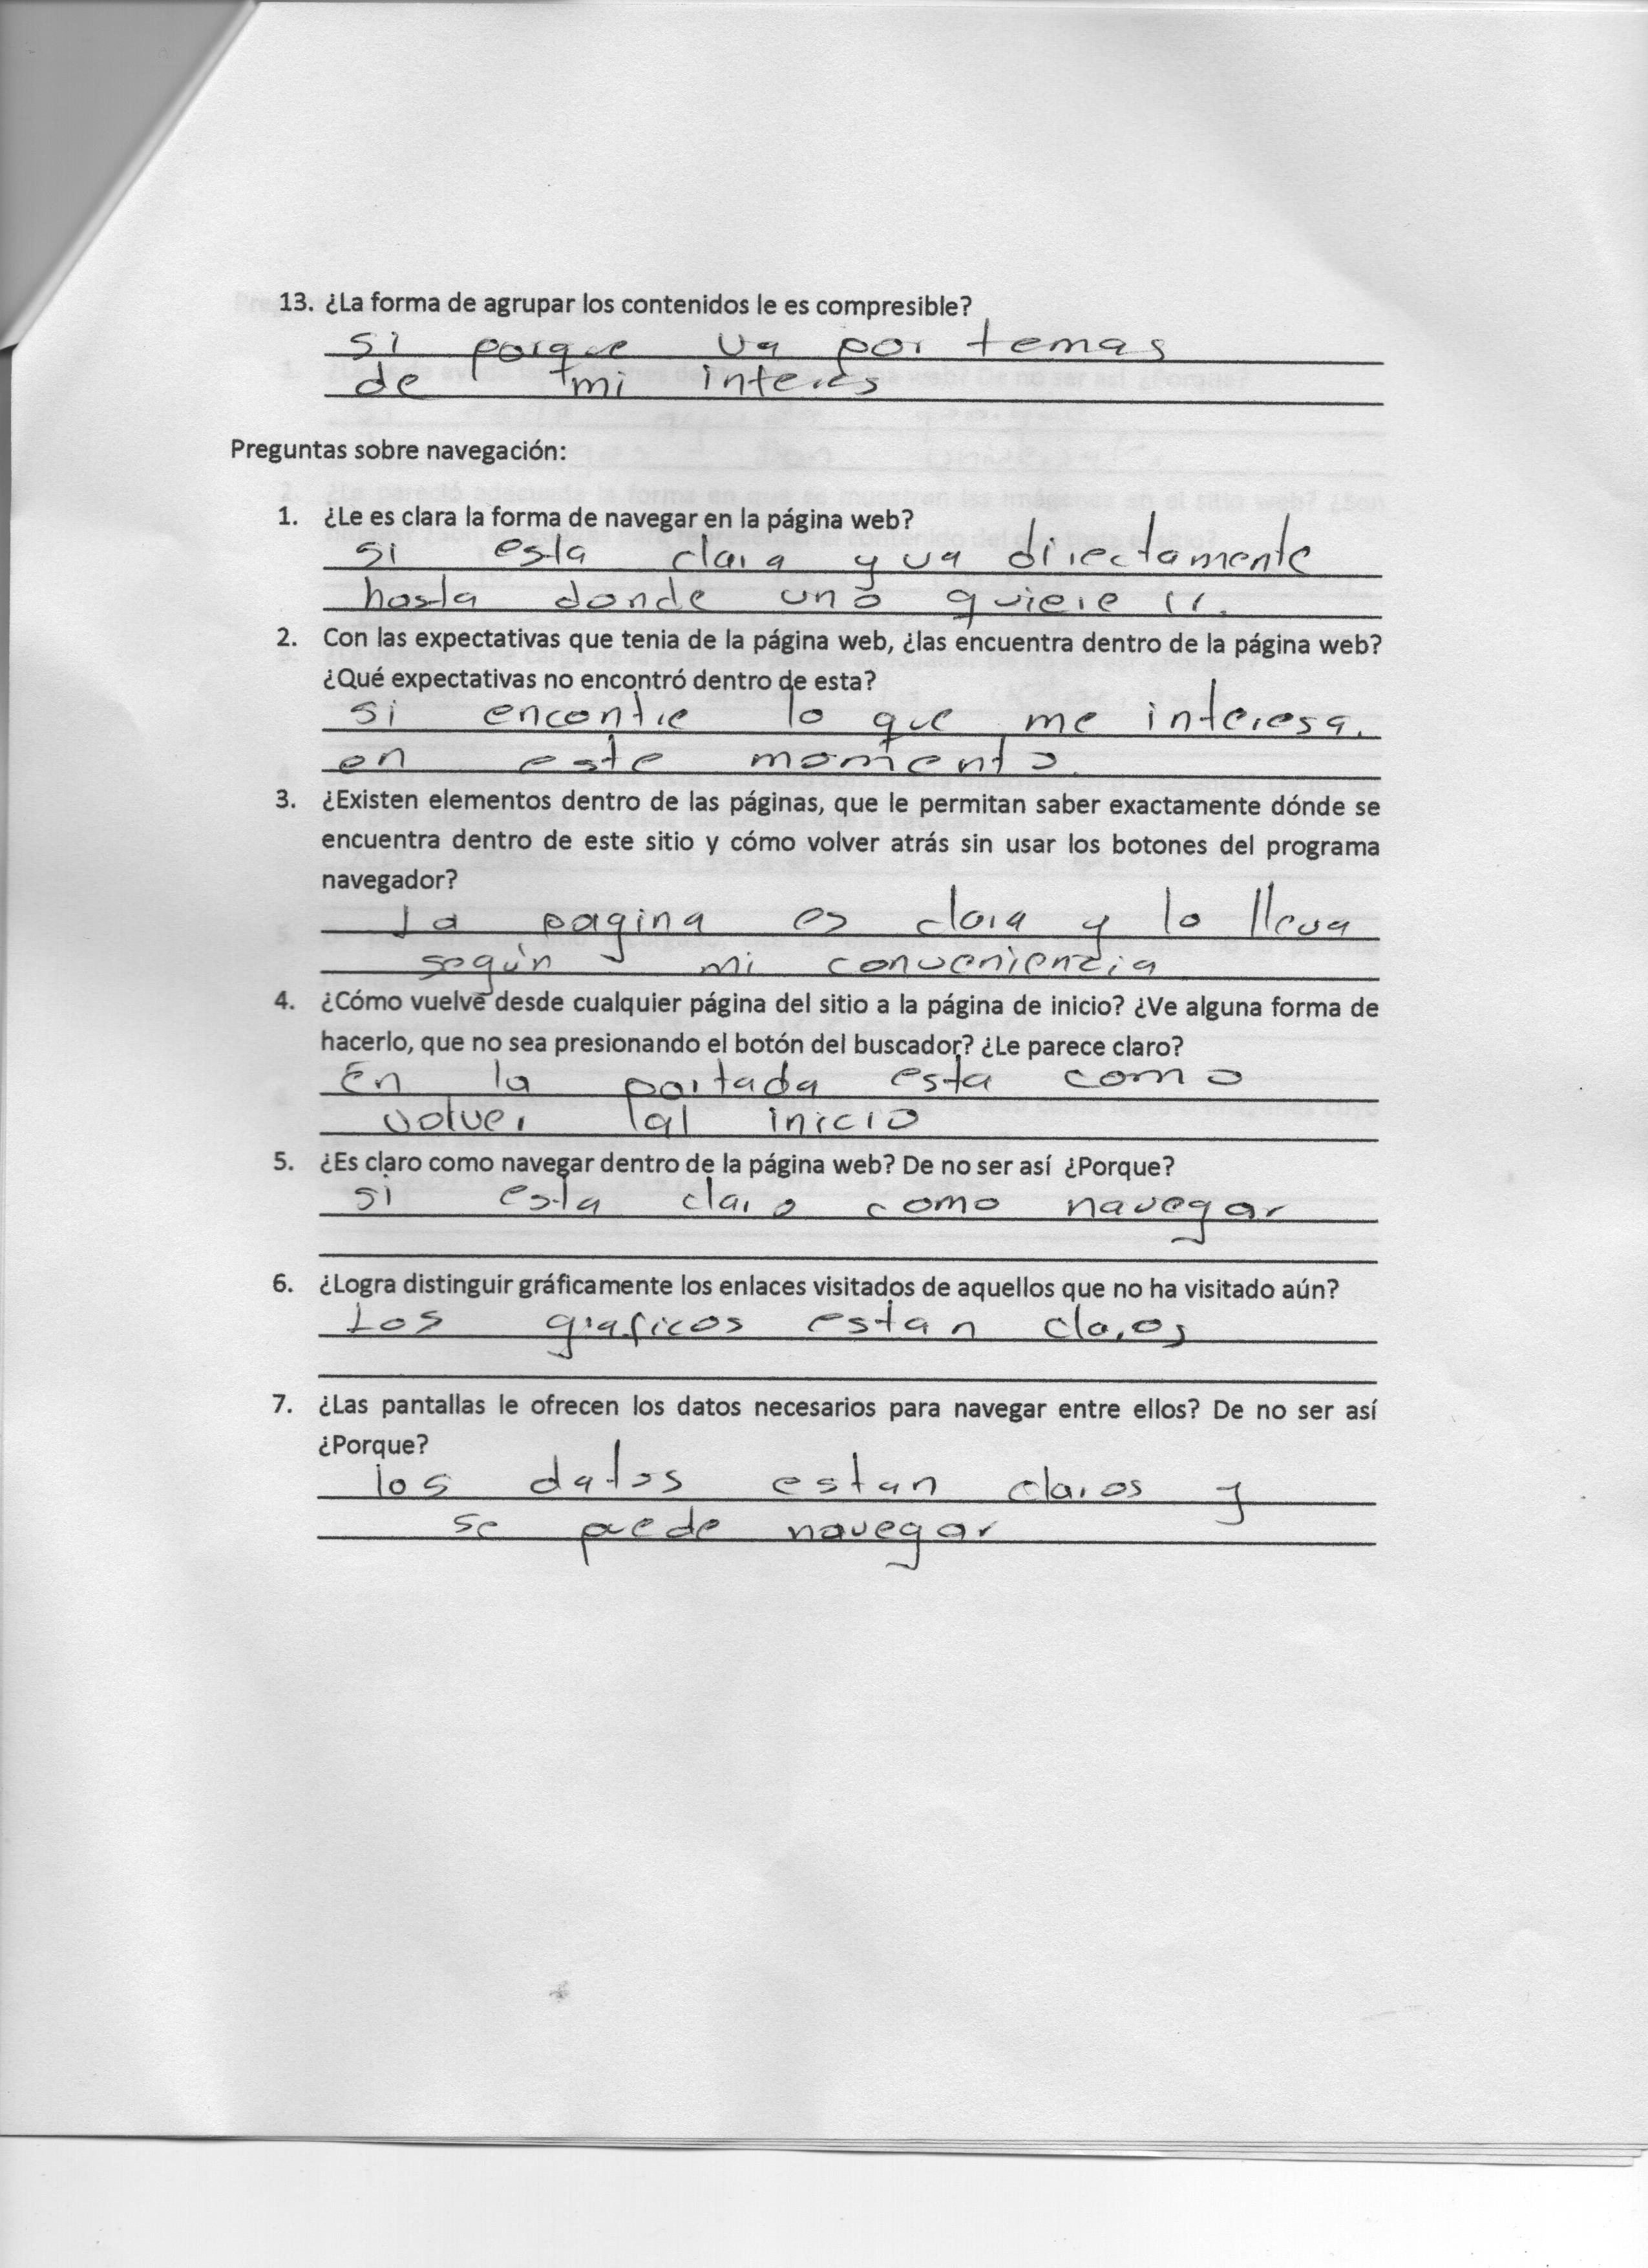 13. ¿La forma de agrupar los contenidos le es compresible?
si porque va por temas
de mi interes
Preguntas sobre navegación:
1. ¿Le es clara la forma de navegar en la página web?
si esta clara y va directamente
hasta donde uno quiere ir.
2. Con las expectativas que tenia de la página web, ¿las encuentra dentro de la página web?
¿Qué expectativas no encontró dentro de esta?
si encontre lo que me interesa.
en este momento.
3. ¿Existen elementos dentro de las páginas, que le permitan saber exactamente dónde se
encuentra dentro de este sitio y cómo volver atrás sin usar los botones del programa
navegador?
La pagina es clara y lo lleva
según mi conveniencia
4. ¿Cómo vuelve desde cualquier página del sitio a la página de inicio? ¿Ve alguna forma de
hacerlo, que no sea presionando el botón del buscador? ¿Le parece claro?
En la portada esta como
volver al inicio
5. ¿Es claro como navegar dentro de la página web? De no ser así ¿Porque?
si esta claro como navegar
6. ¿Logra distinguir gráficamente los enlaces visitados de aquellos que no ha visitado aún?
Los graficos estan claros
7. ¿Las pantallas le ofrecen los datos necesarios para navegar entre ellos? De no ser así
¿Porque?
los datos estan claros y
se puede navegar